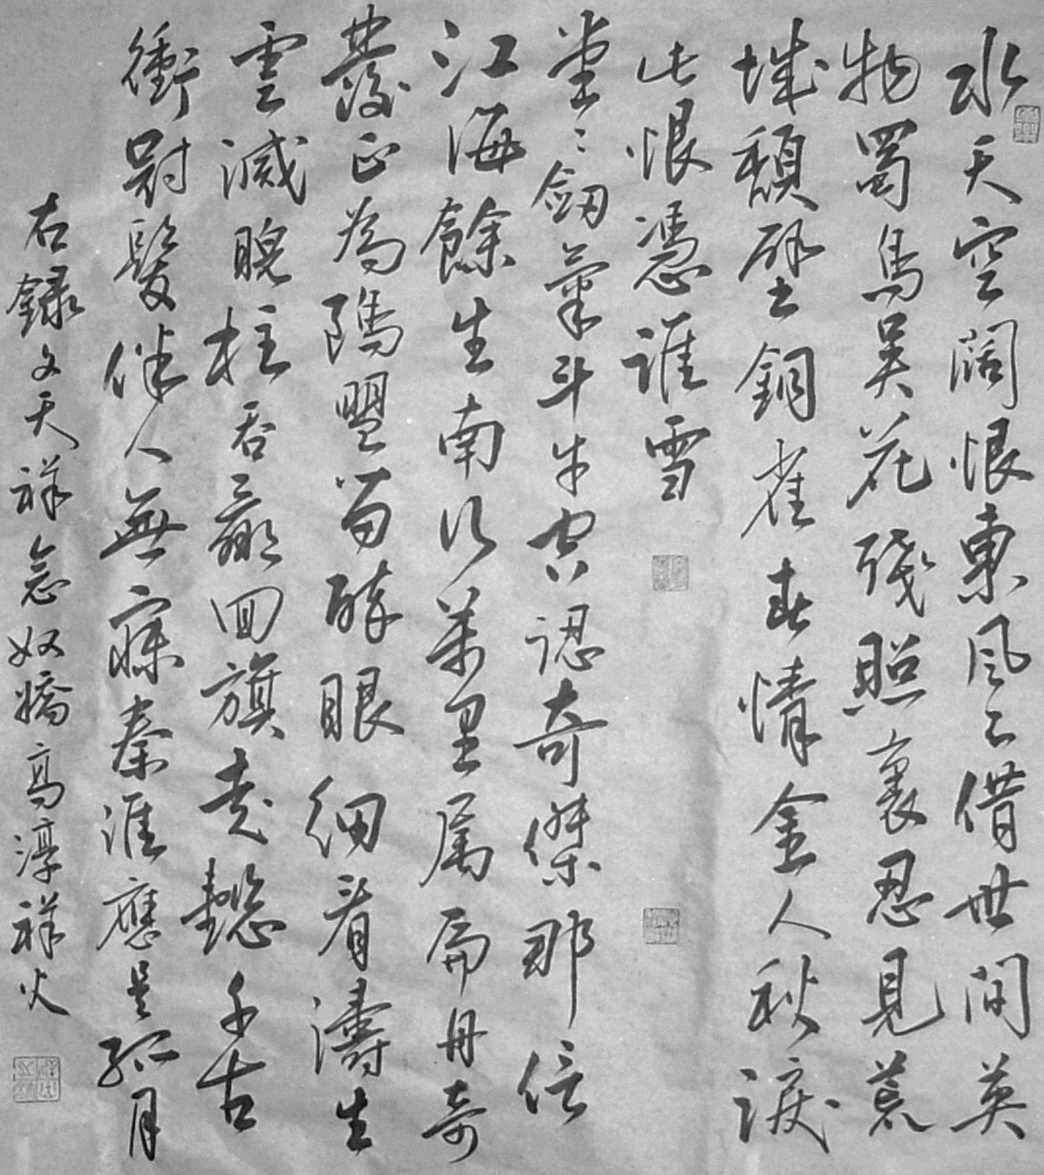 水天空闊恨東風不借世間英
物蜀鳥吳花殘照裏忍見荒
城頹壁銅雀春情金人秋淚
此恨憑誰雪
堂〻劔氣斗牛空認奇傑那信
江海餘生南行萬里屬扁舟奇
發正為鷗盟留醉眼細看濤生
雲滅睨柱吞嬴回旗走懿千古
衝冠髮伴人無寐秦淮應是孤月
右錄文天祥念奴嬌高淳祥火